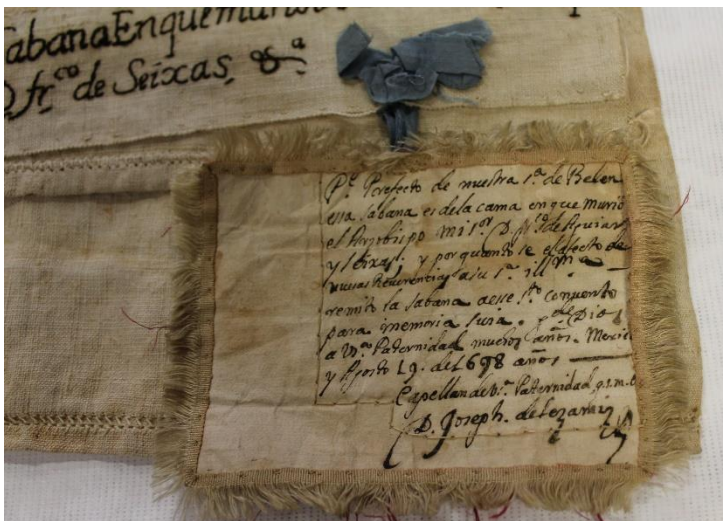 Sabana Enque murió
D. fr.co de Seixas, &.a
P.e Perefecto de nuestra s.ra de Belen
essa sabana es de la cama en que murió
el Arzobispo mi s.or D. fr.co de Aguiar
y seixas; y por quanto se el afecto de
vuessas Reverencias a su s.a ill.ma
remito la sabana a esse s.to convento
para memoria suia. g.e Dios
a V.ra Paternidad muchos años. Mexico
y Agosto 19. de 1698 años
Capellan de V.ra Paternidad q.s.m.b
D. Joseph. de Lezamis